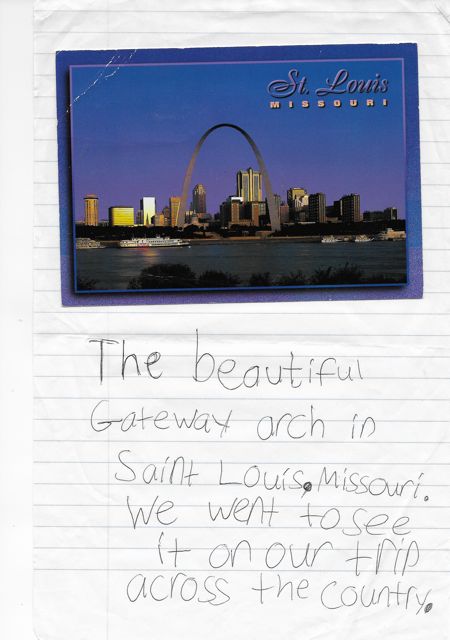 St. Louis
MISSOURI
The beautiful
Gateway arch in
Saint Louis, Missouri.
We went to see
it on our trip
across the country.